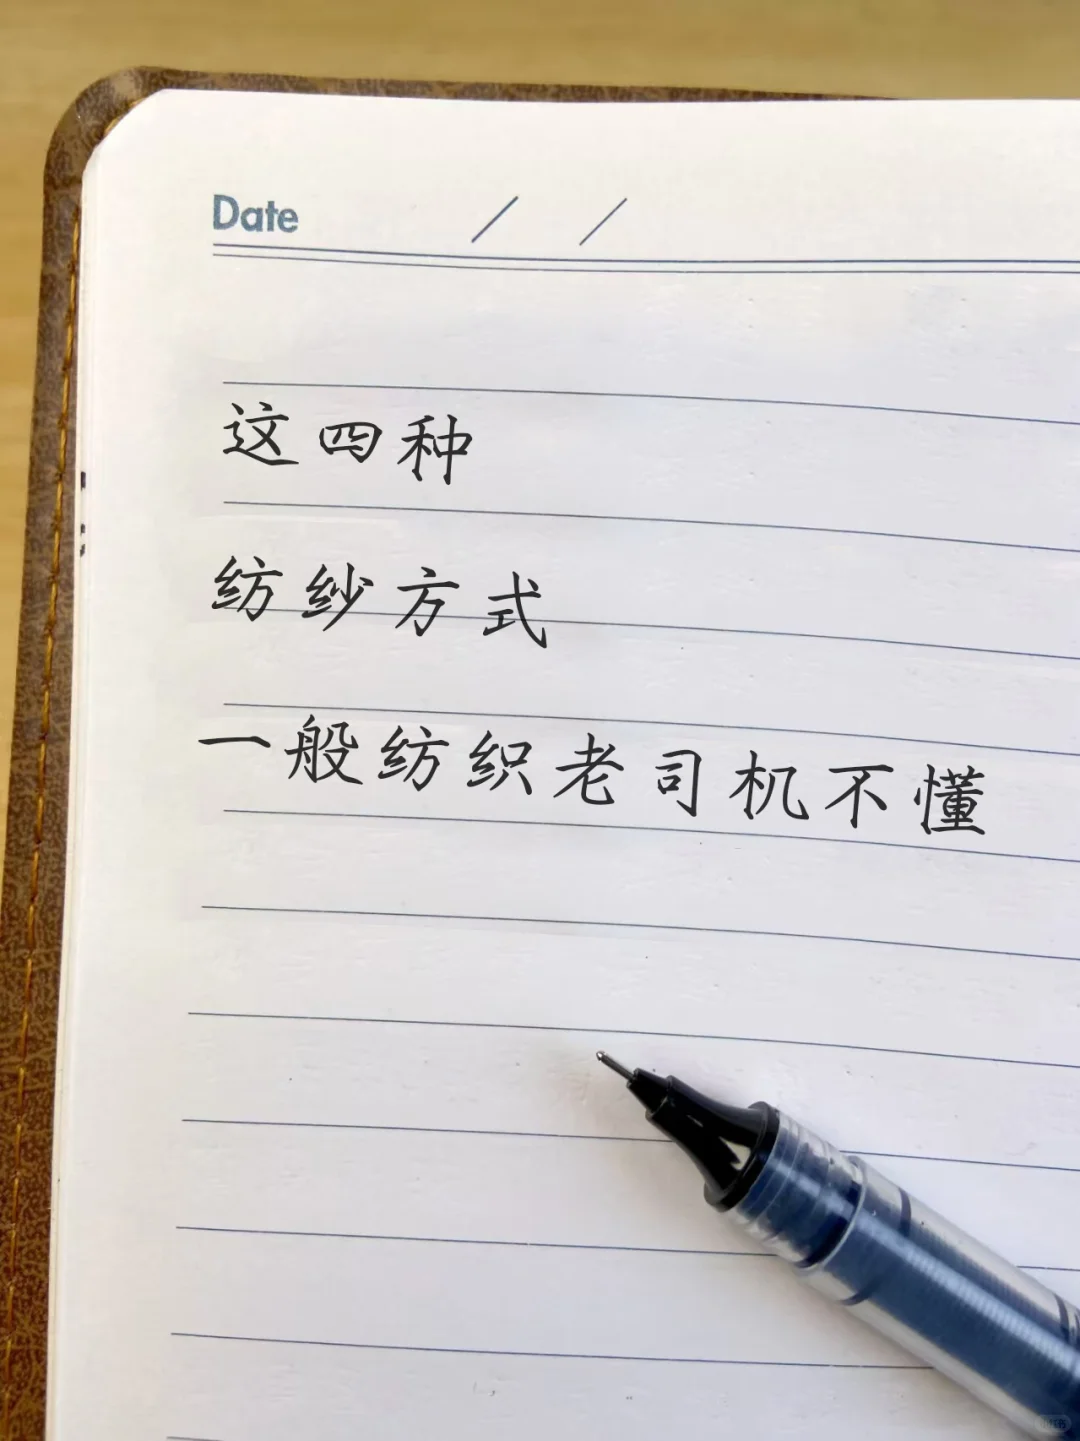 Date / /
这四种
纺纱方式
一般纺织老司机不懂